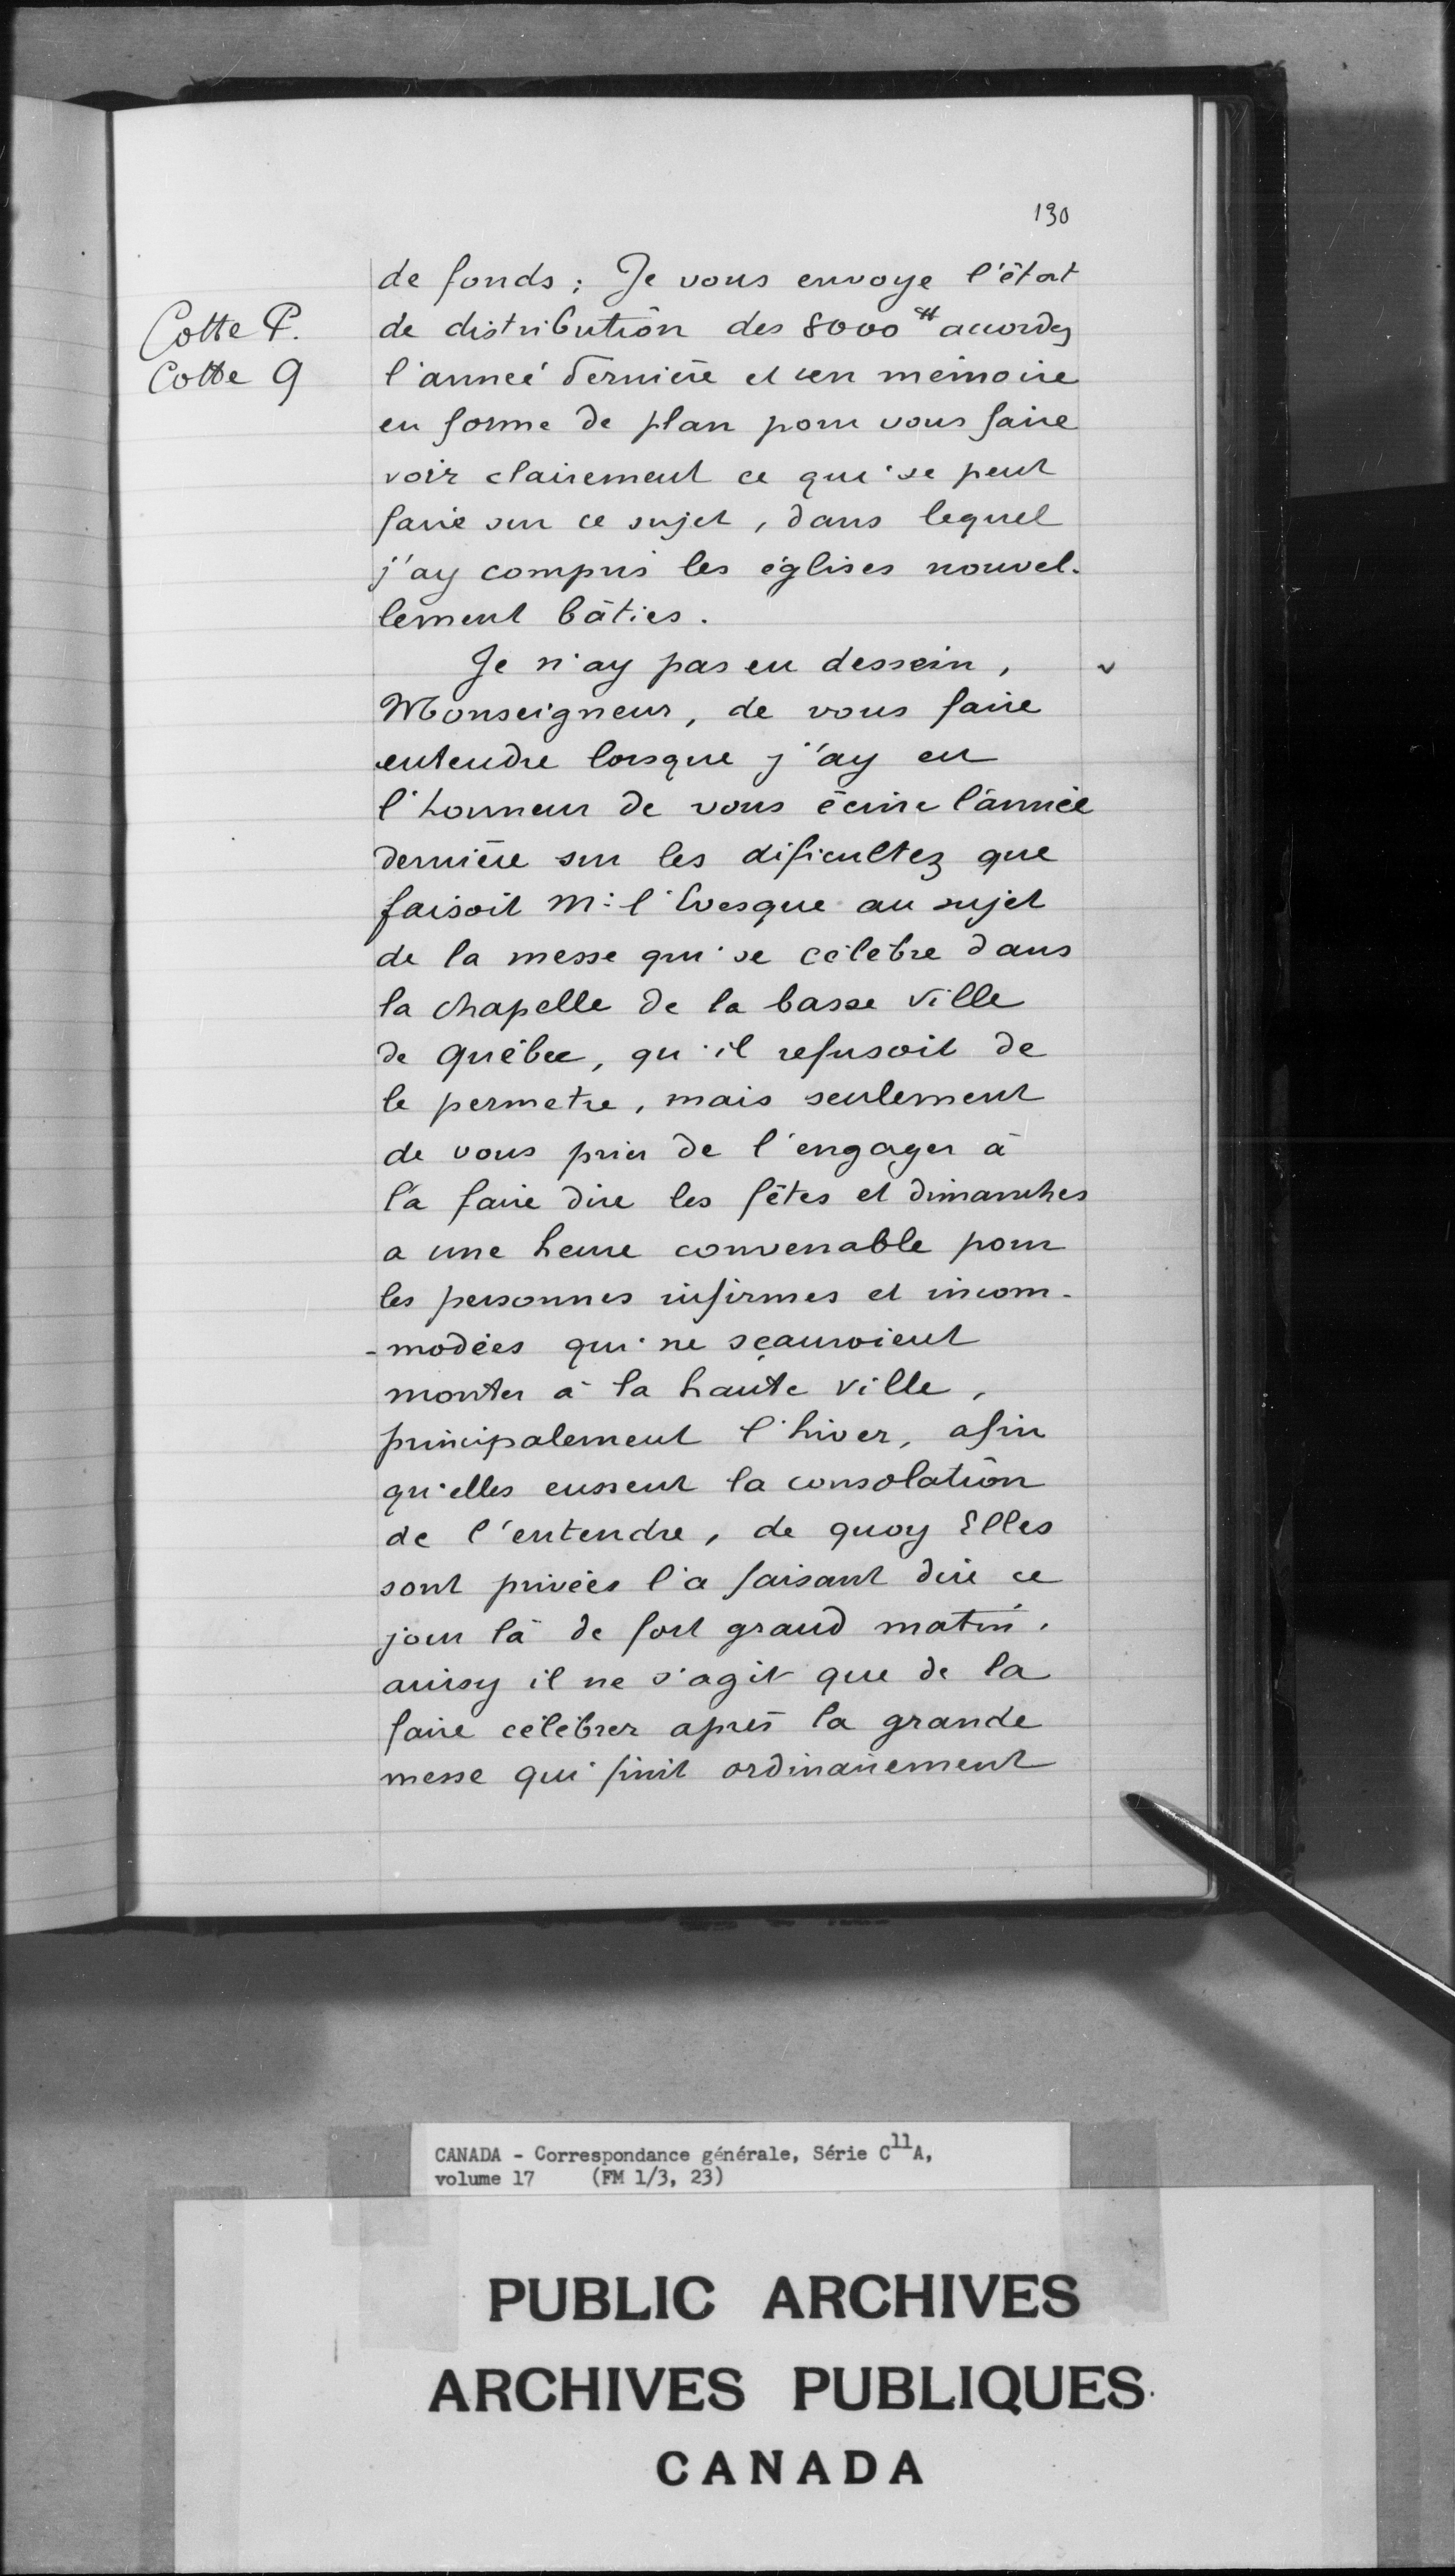 130
de fonds ; Je vous envoye l'état
Cotte P.
de distribution des 8000 ## accordez
Cotte Q
l'anneé dernière et un mémoire
en forme de plan pour vous faire
voir clairement ce qui se peut
faire sur ce sujet, dans lequel
j'ay compris les églises nouvel-
lement bâties.
Je n'ay pas eu dessein,
Monseigneur, de vous faire
entendre lorsque j'ay eu
l'honneur de vous écrire l'année
dernière sur les dificultez que
faisoit M: l'Evesque au sujet
de la messe qui se célèbre dans
la chapelle de la basse ville
de Québec, qu'il refusoit de
le permetre, mais seulement
de vous prier de l'engager à
l'a faire dire les fêtes et dimanches
a une heure convenable pour
les personnes infirmes et incom-
-modées qui ne sçauroient
monter à la haute ville,
principalement l'hiver, afin
qu'elles eussent la consolation
de l'entendre, de quoy Elles
sont privées l'a faisant dire ce
jour là de fort grand matin.
aussy il ne s'agit que de la
faire célébrer après la grande
messe qui finit ordinairement
CANADA - Correspondance générale, Série C11A,
volume 17 (FM 1/3, 23)
PUBLIC ARCHIVES
ARCHIVES PUBLIQUES
CANADA